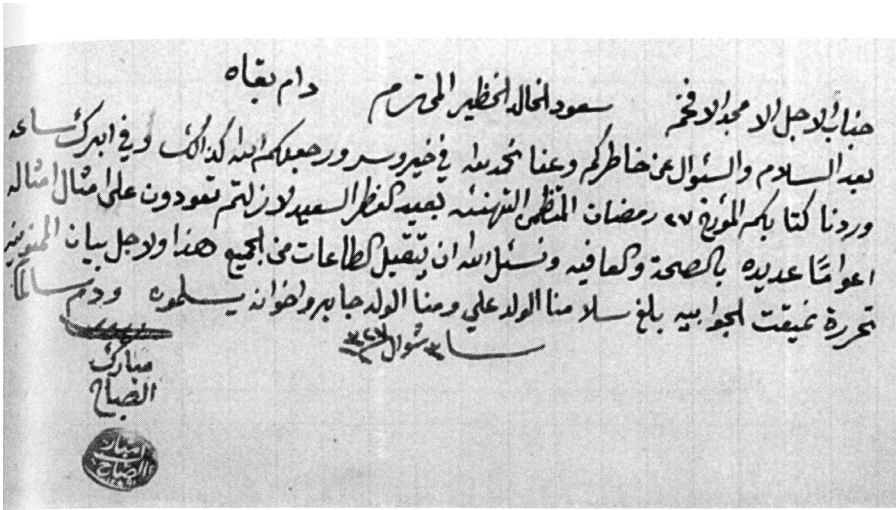 جناب الاجل الامجد الافخم سعود الخالد الخظير المحترم دام بقاه
بعد السلام والسئوال عن خاطركم وعنا نحمد الله في خير وسرور جعلكم الله كذالك وفي ابرك ساعه
وردنا كتابكم المؤرخ ٢٧ رمضان المتظمن التهنئه بعيد الفطر السعيد لازلتم تعودون على امثال امثاله
اعواما عديده بالصحة والعافيه ونسئل الله ان يتقبل الطاعات من الجميع هذا ولاجل بيان الممنونيه
تحررة نميقت الجوابيه بلغ سلامنا الولد علي ومنا الولد جابر واخوانه يسلمون ودم سالما
٣ شوال ٣٢٧
مبارك
الصباح
مبارك
الصباح